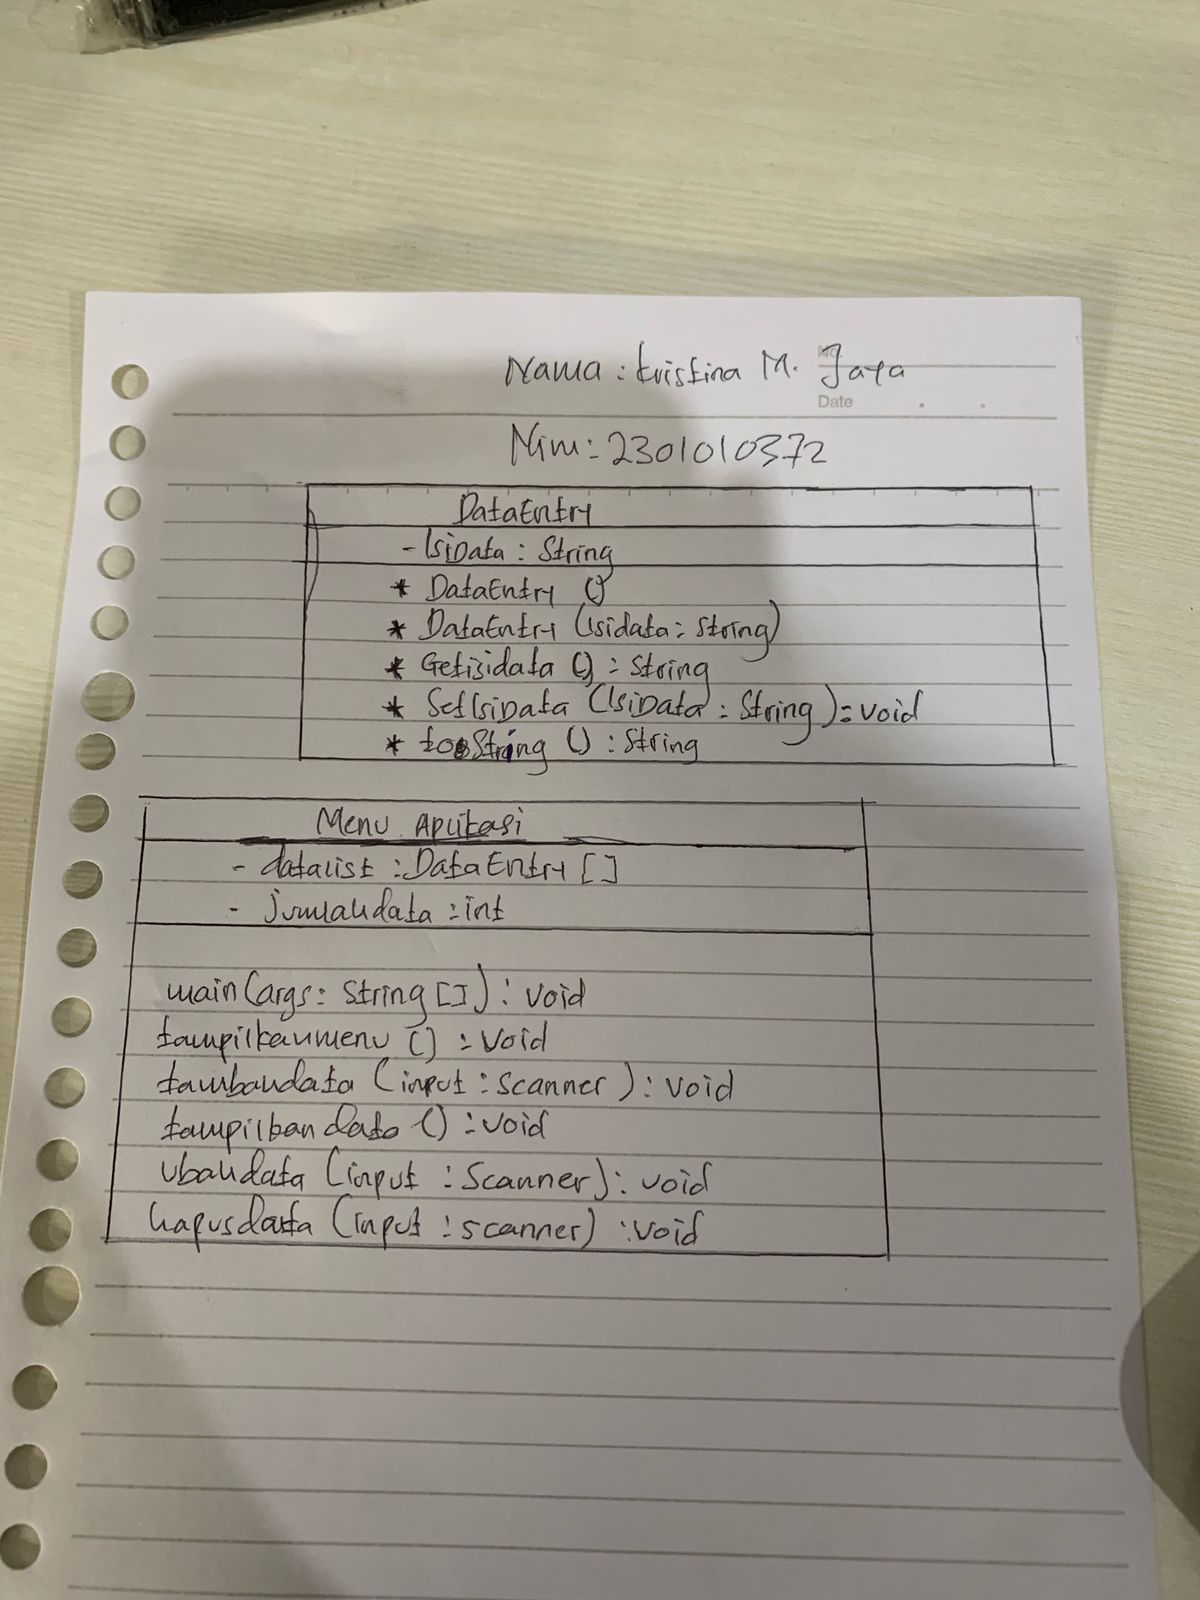 Nama : Kristina M. Jaya
No
Date
Nim : 2301010372
DataEntry
- IsiData : String
* DataEntry ()
* DataEntry (Isidata : String)
* Getisidata () : String
* SetIsiData (IsiData : String) : void
* toString () : String
Menu Aplikasi
- datalist : DataEntry []
- jumlahdata : int
main (args : String []) : void
tampilkanmenu () : void
tambahdata (input : scanner) : void
tampilkan data () : void
ubahdata (input : Scanner) : void
hapusdata (input : scanner) : void